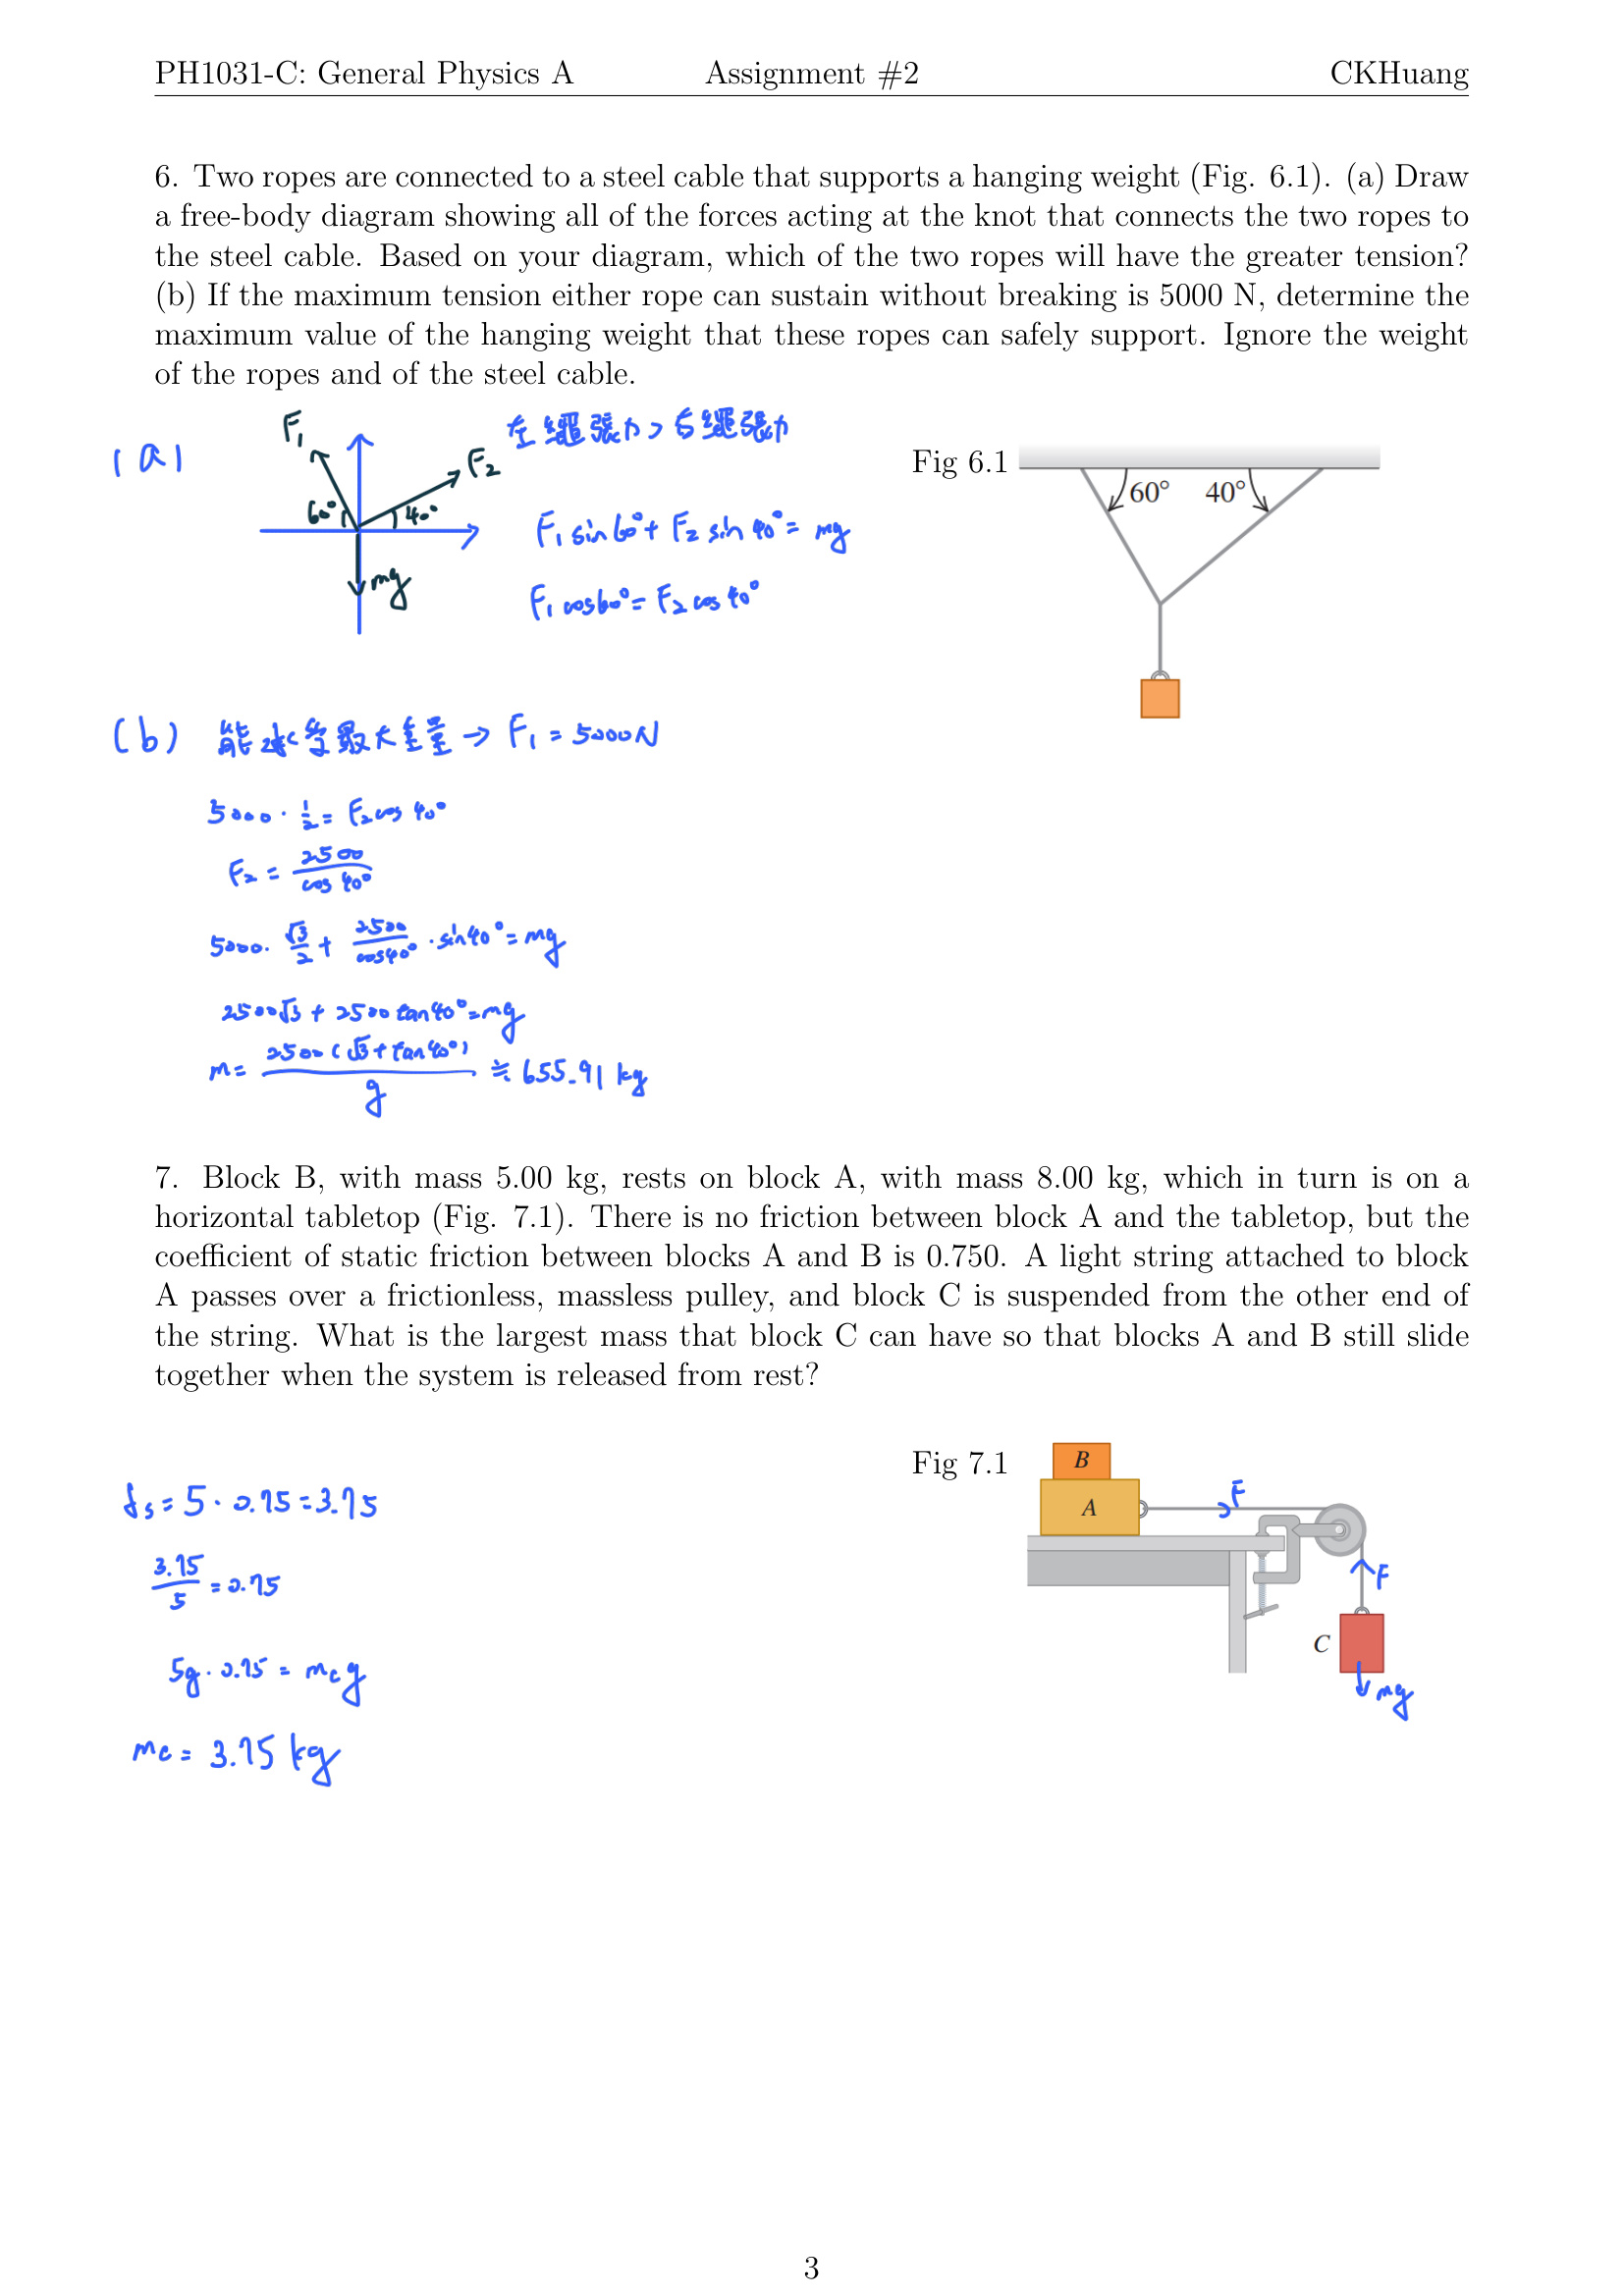 PH1031-C: General Physics A Assignment #2 CKHuang
6. Two ropes are connected to a steel cable that supports a hanging weight (Fig. 6.1). (a) Draw
a free-body diagram showing all of the forces acting at the knot that connects the two ropes to
the steel cable. Based on your diagram, which of the two ropes will have the greater tension?
(b) If the maximum tension either rope can sustain without breaking is 5000 N, determine the
maximum value of the hanging weight that these ropes can safely support. Ignore the weight
of the ropes and of the steel cable.
(a)
F₁
F₂
60°
40°
mg
左繩張力 > 右繩張力
F₁ sin60° + F₂ sin 40° = mg
F₁ cos60° = F₂ cos 40°
Fig 6.1
60° 40°
(b) 能承受最大重量 → F₁ = 5000N
5000 · 1/2 = F₂ cos 40°
F₂ = 2500/cos 40°
5000 · √3/2 + 2500/cos40° · sin40° = mg
2500√3 + 2500 tan40° = mg
m = 2500(√3 + tan40°)/g ≒ 655.91 kg
7. Block B, with mass 5.00 kg, rests on block A, with mass 8.00 kg, which in turn is on a
horizontal tabletop (Fig. 7.1). There is no friction between block A and the tabletop, but the
coefficient of static friction between blocks A and B is 0.750. A light string attached to block
A passes over a frictionless, massless pulley, and block C is suspended from the other end of
the string. What is the largest mass that block C can have so that blocks A and B still slide
together when the system is released from rest?
Fig 7.1
B
A
F
F
C
mg
fs = 5 · 0.75 = 3.75
3.75/5 = 0.75
5g · 0.75 = mcg
mc = 3.75 kg
3